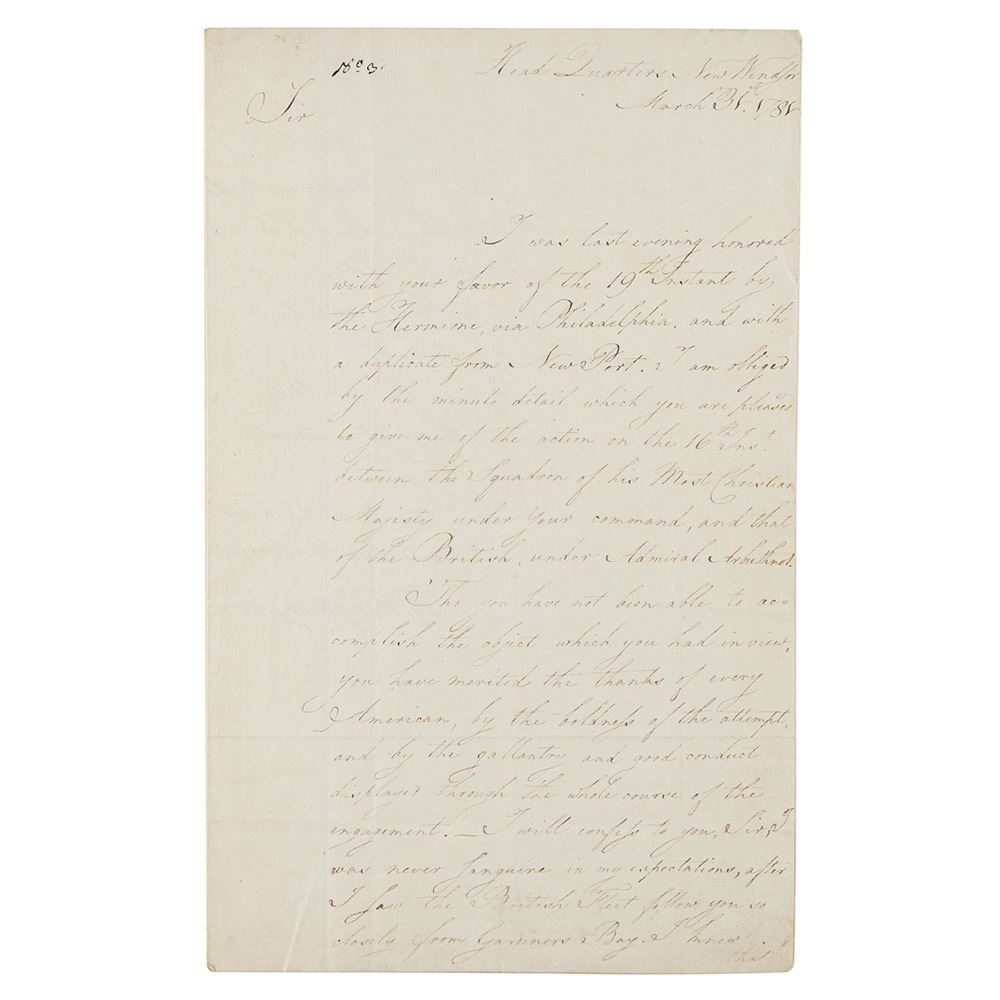 No. 3.
Head Quarters New Windsor
March 31st. 1781
Sir
I was last evening honored
with your favor of the 19th Instant by
the Hermione, via Philadelphia, and with
a duplicate from New Port. I am obliged
by the minute detail which you are pleased
to give me of the action on the 16th Inst.
between the Squadron of his Most Christian
Majesty under your command, and that
of the British, under Admiral Arbuthnot.
Tho you have not been able to ac=
complish the object which you had in view,
you have merited the thanks of every
American, by the boldness of the attempt,
and by the gallantry and good conduct
displayed through the whole course of the
engagement. — I will confess to you, Sir, I
was never sanguine in my expectations, after
I saw the British Fleet follow you so
closely from Gardiners Bay. I knew
that